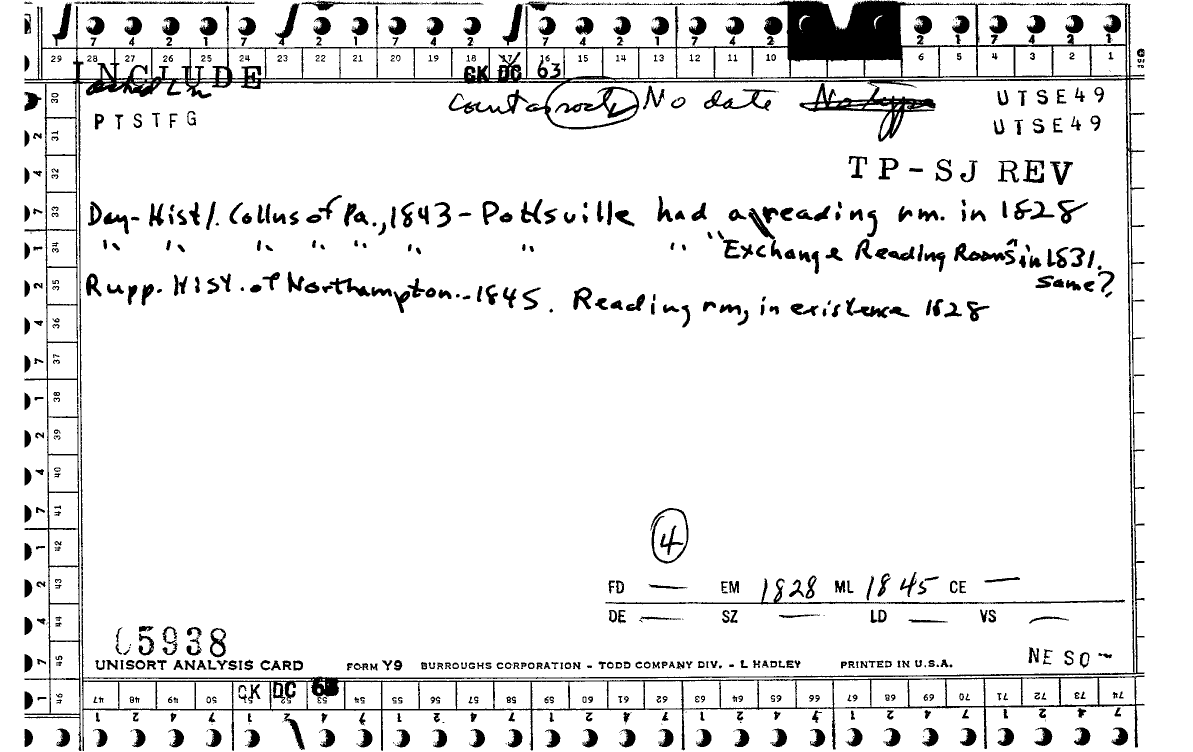 7 4 2 1 7 4 2 1 7 4 2 1 7 4 2 1 7 4 2 2 1 7 4 2 1
29 28 27 26 25 24 23 22 21 20 19 18 17 16 15 14 13 12 11 10 6 5 4 3 2 1
INCLUDE CK DC 63
No date No type UTSE49
PTSTFG UTSE49
TP-SJ REV
Day-Hist'l. Collns of Pa., 1843 - Pottsville had a reading rm. in 1828
" " " " " " " " "Exchange Reading Rooms" in 1831.
same?
Rupp. Hist. of Northampton.. 1845. Reading rm, in existence 1828
30 31 32 33 34 35 36 37 38 39 40 41 42 43 44 45 46
4
FD — EM 1828 ML 1845 CE —
DE — SZ — LD — VS —
05938
UNISORT ANALYSIS CARD FORM Y9 BURROUGHS CORPORATION - TODD COMPANY DIV. - L HADLEY PRINTED IN U.S.A. NESO-
CK DC 63
47 48 49 50 51 52 53 54 55 56 57 58 59 60 61 62 63 64 65 66 67 68 69 70 71 72 73 74
1 2 4 7 1 2 4 7 1 2 4 7 1 2 4 7 1 2 4 7 1 2 4 7 1 2 4 7